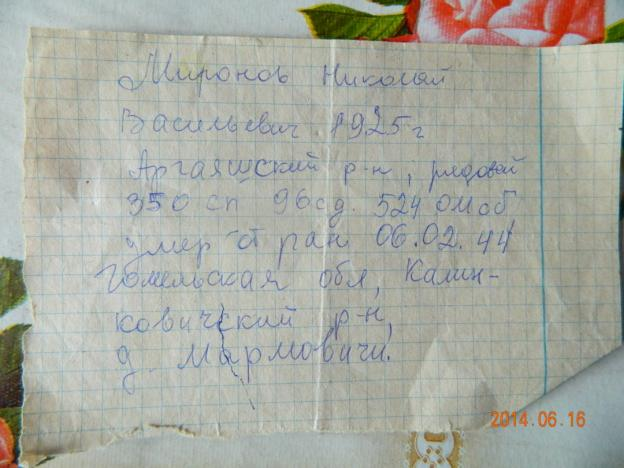 Миронов Николай
Васильевич 1925г
Аргаяшский р-н, рядовой
350 сп 96сд. 524 ОМ об
умер от ран 06.02.44
Гомельская обл, Калин-
ковичский р-н,
д. Мармовичи.
2014.06.16